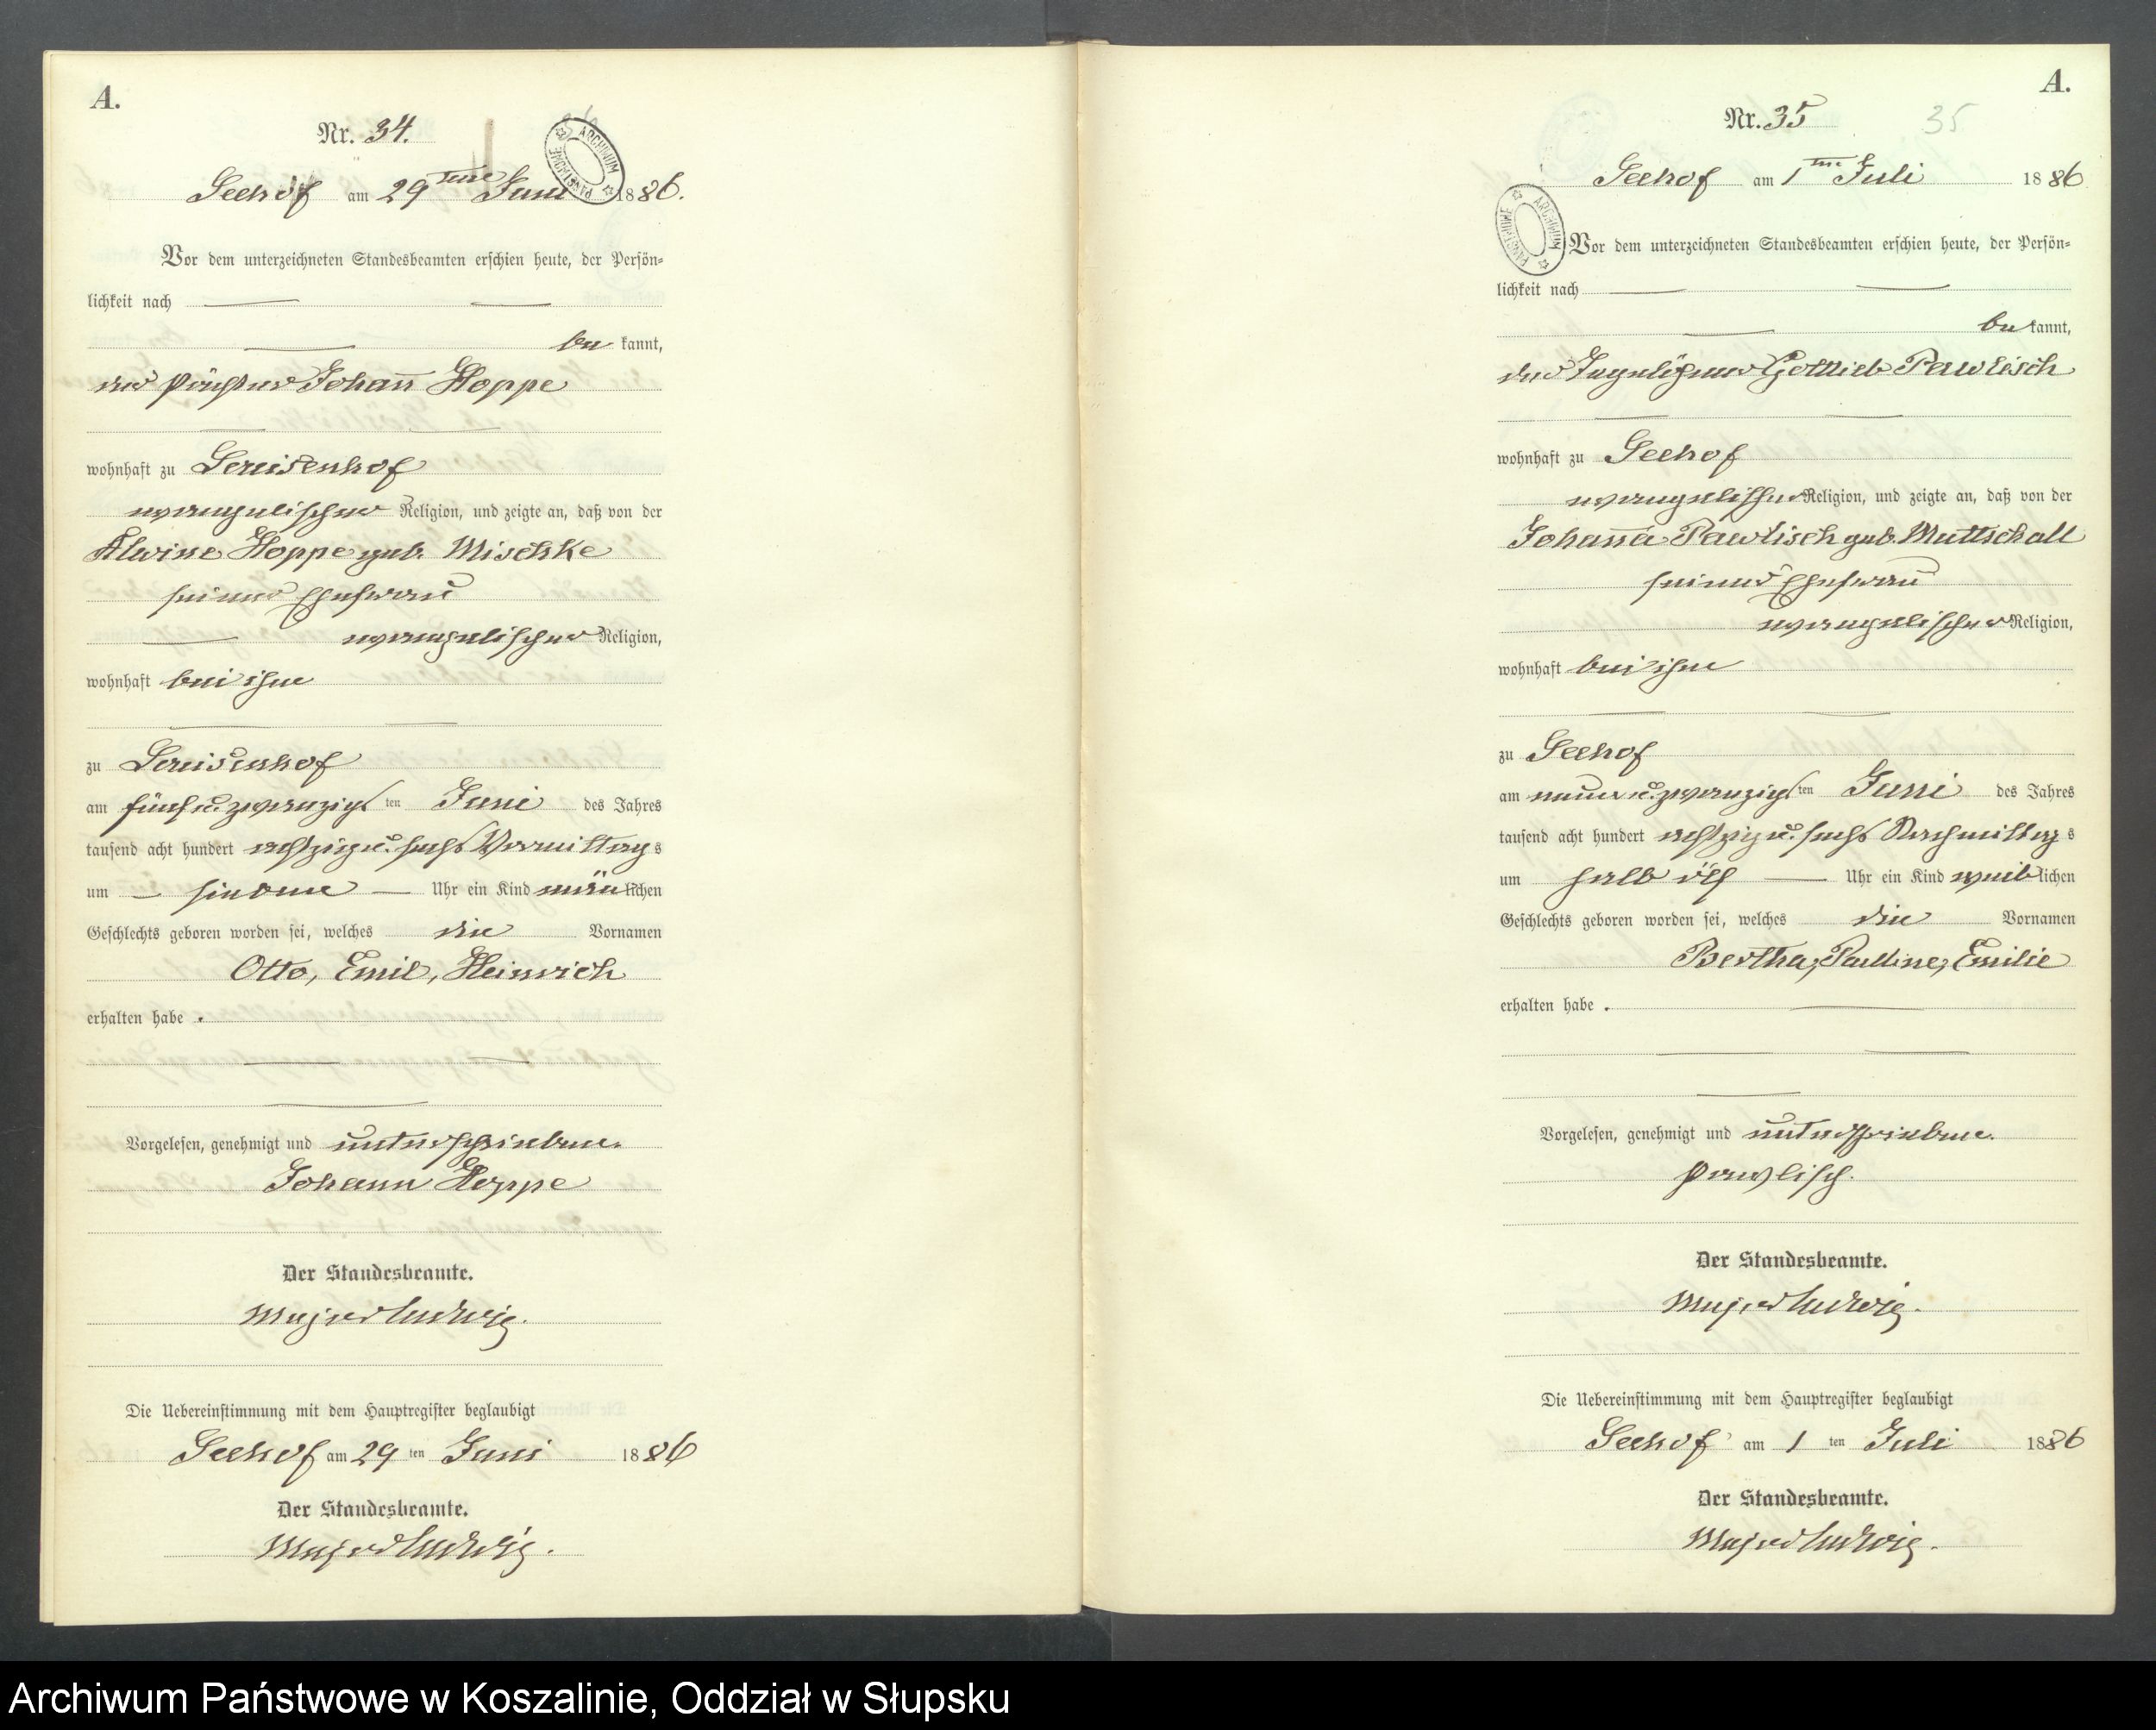 A.
Nr. 34.
ARCHIWUM PAŃSTWOWE
Seehof am 29ten Juni 1886.
Vor dem unterzeichneten Standesbeamten erschien heute, der Persön-
lichkeit nach
be kannt,
der Pächter Johann Hoppe
wohnhaft zu Louisenhof
evangelischer Religion, und zeigte an, daß von der
Alwine Hoppe geb. Mischke
seiner Ehefrau
evangelischer Religion,
wohnhaft bei ihm
zu Louisenhof
am fünf u. zwanzigs ten Juni des Jahres
tausend acht hundert achtzig u. sechs Vormittag s
um sieben Uhr ein Kind män lichen
Geschlechts geboren worden sei, welches die Vornamen
Otto, Emil, Heinrich
erhalten habe .
Vorgelesen, genehmigt und unterschrieben.
Johann Hoppe
Der Standesbeamte.
Ludwig.
Die Uebereinstimmung mit dem Hauptregister beglaubigt
Seehof am 29 ten Juni 1886
Der Standesbeamte.
Ludwig.
A.
Nr. 35
35
Seehof am 1ten Juli 1886
ARCHIWUM PAŃSTWOWE
Vor dem unterzeichneten Standesbeamten erschien heute, der Persön-
lichkeit nach
be kannt,
der Gottlieb Pawlisch
wohnhaft zu Seehof
evangelischer Religion, und zeigte an, daß von der
Johanna Pawlisch geb. Muttschall
seiner Ehefrau
evangelischer Religion,
wohnhaft bei ihm
zu Seehof
am neun u. zwanzigs ten Juni des Jahres
tausend acht hundert achtzig u. sechs Nachmittag s
um halb ölf Uhr ein Kind weib lichen
Geschlechts geboren worden sei, welches die Vornamen
Bertha, Pauline, Emilie
erhalten habe .
Vorgelesen, genehmigt und unterschrieben.
Pawlisch.
Der Standesbeamte.
Ludwig.
Die Uebereinstimmung mit dem Hauptregister beglaubigt
Seehof am 1 ten Juli 1886
Der Standesbeamte.
Ludwig.
Archiwum Państwowe w Koszalinie, Oddział w Słupsku